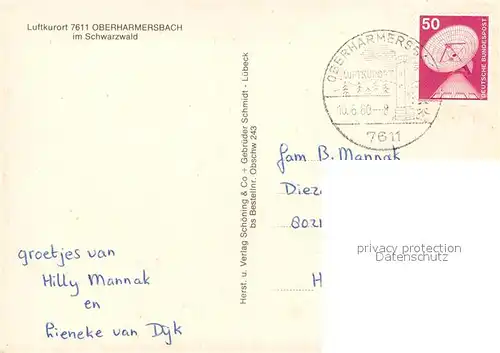 Luftkurort 7611 OBERHARMERSBACH
im Schwarzwald
50
DEUTSCHE BUNDESPOST
OBERHARMERSB
LUFTKURORT
10.6.80-8
7611
Herst. u. Verlag Schöning & Co + Gebrüder Schmidt - Lübeck
bs Bestellnr. Obschw 243
fam B. Mannak
Diez
8021
H
privacy protection
Datenschutz
groetjes van
Hilly Mannak
en
Lieneke van Dyk